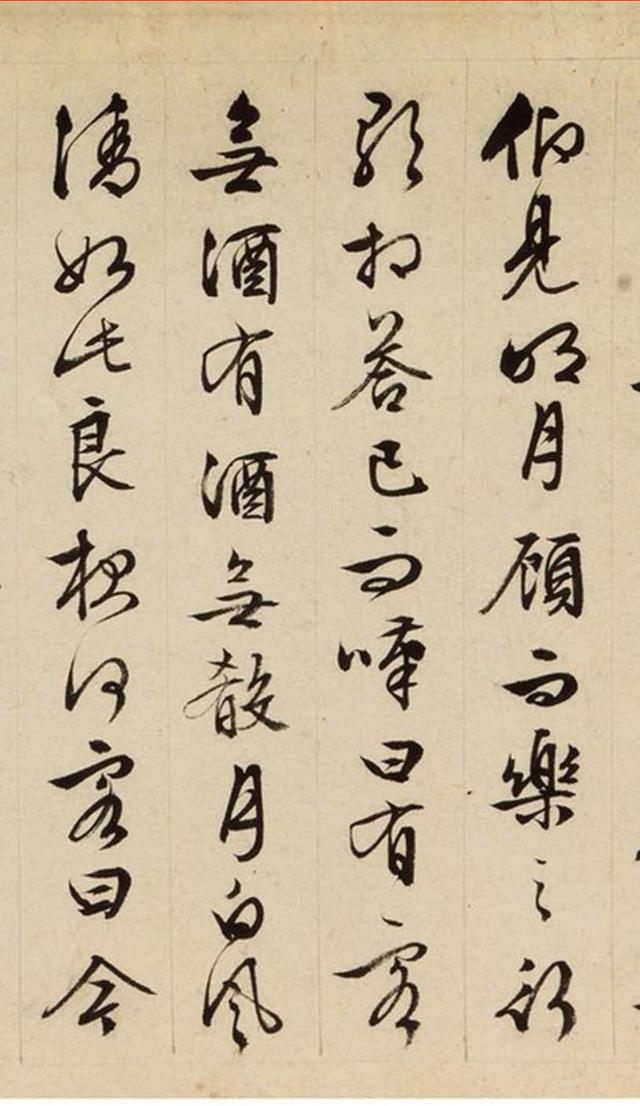 仰見明月顧而樂之行
歌相答已而嘆曰有客
無酒有酒無殽月白風
清如此良夜何客曰今